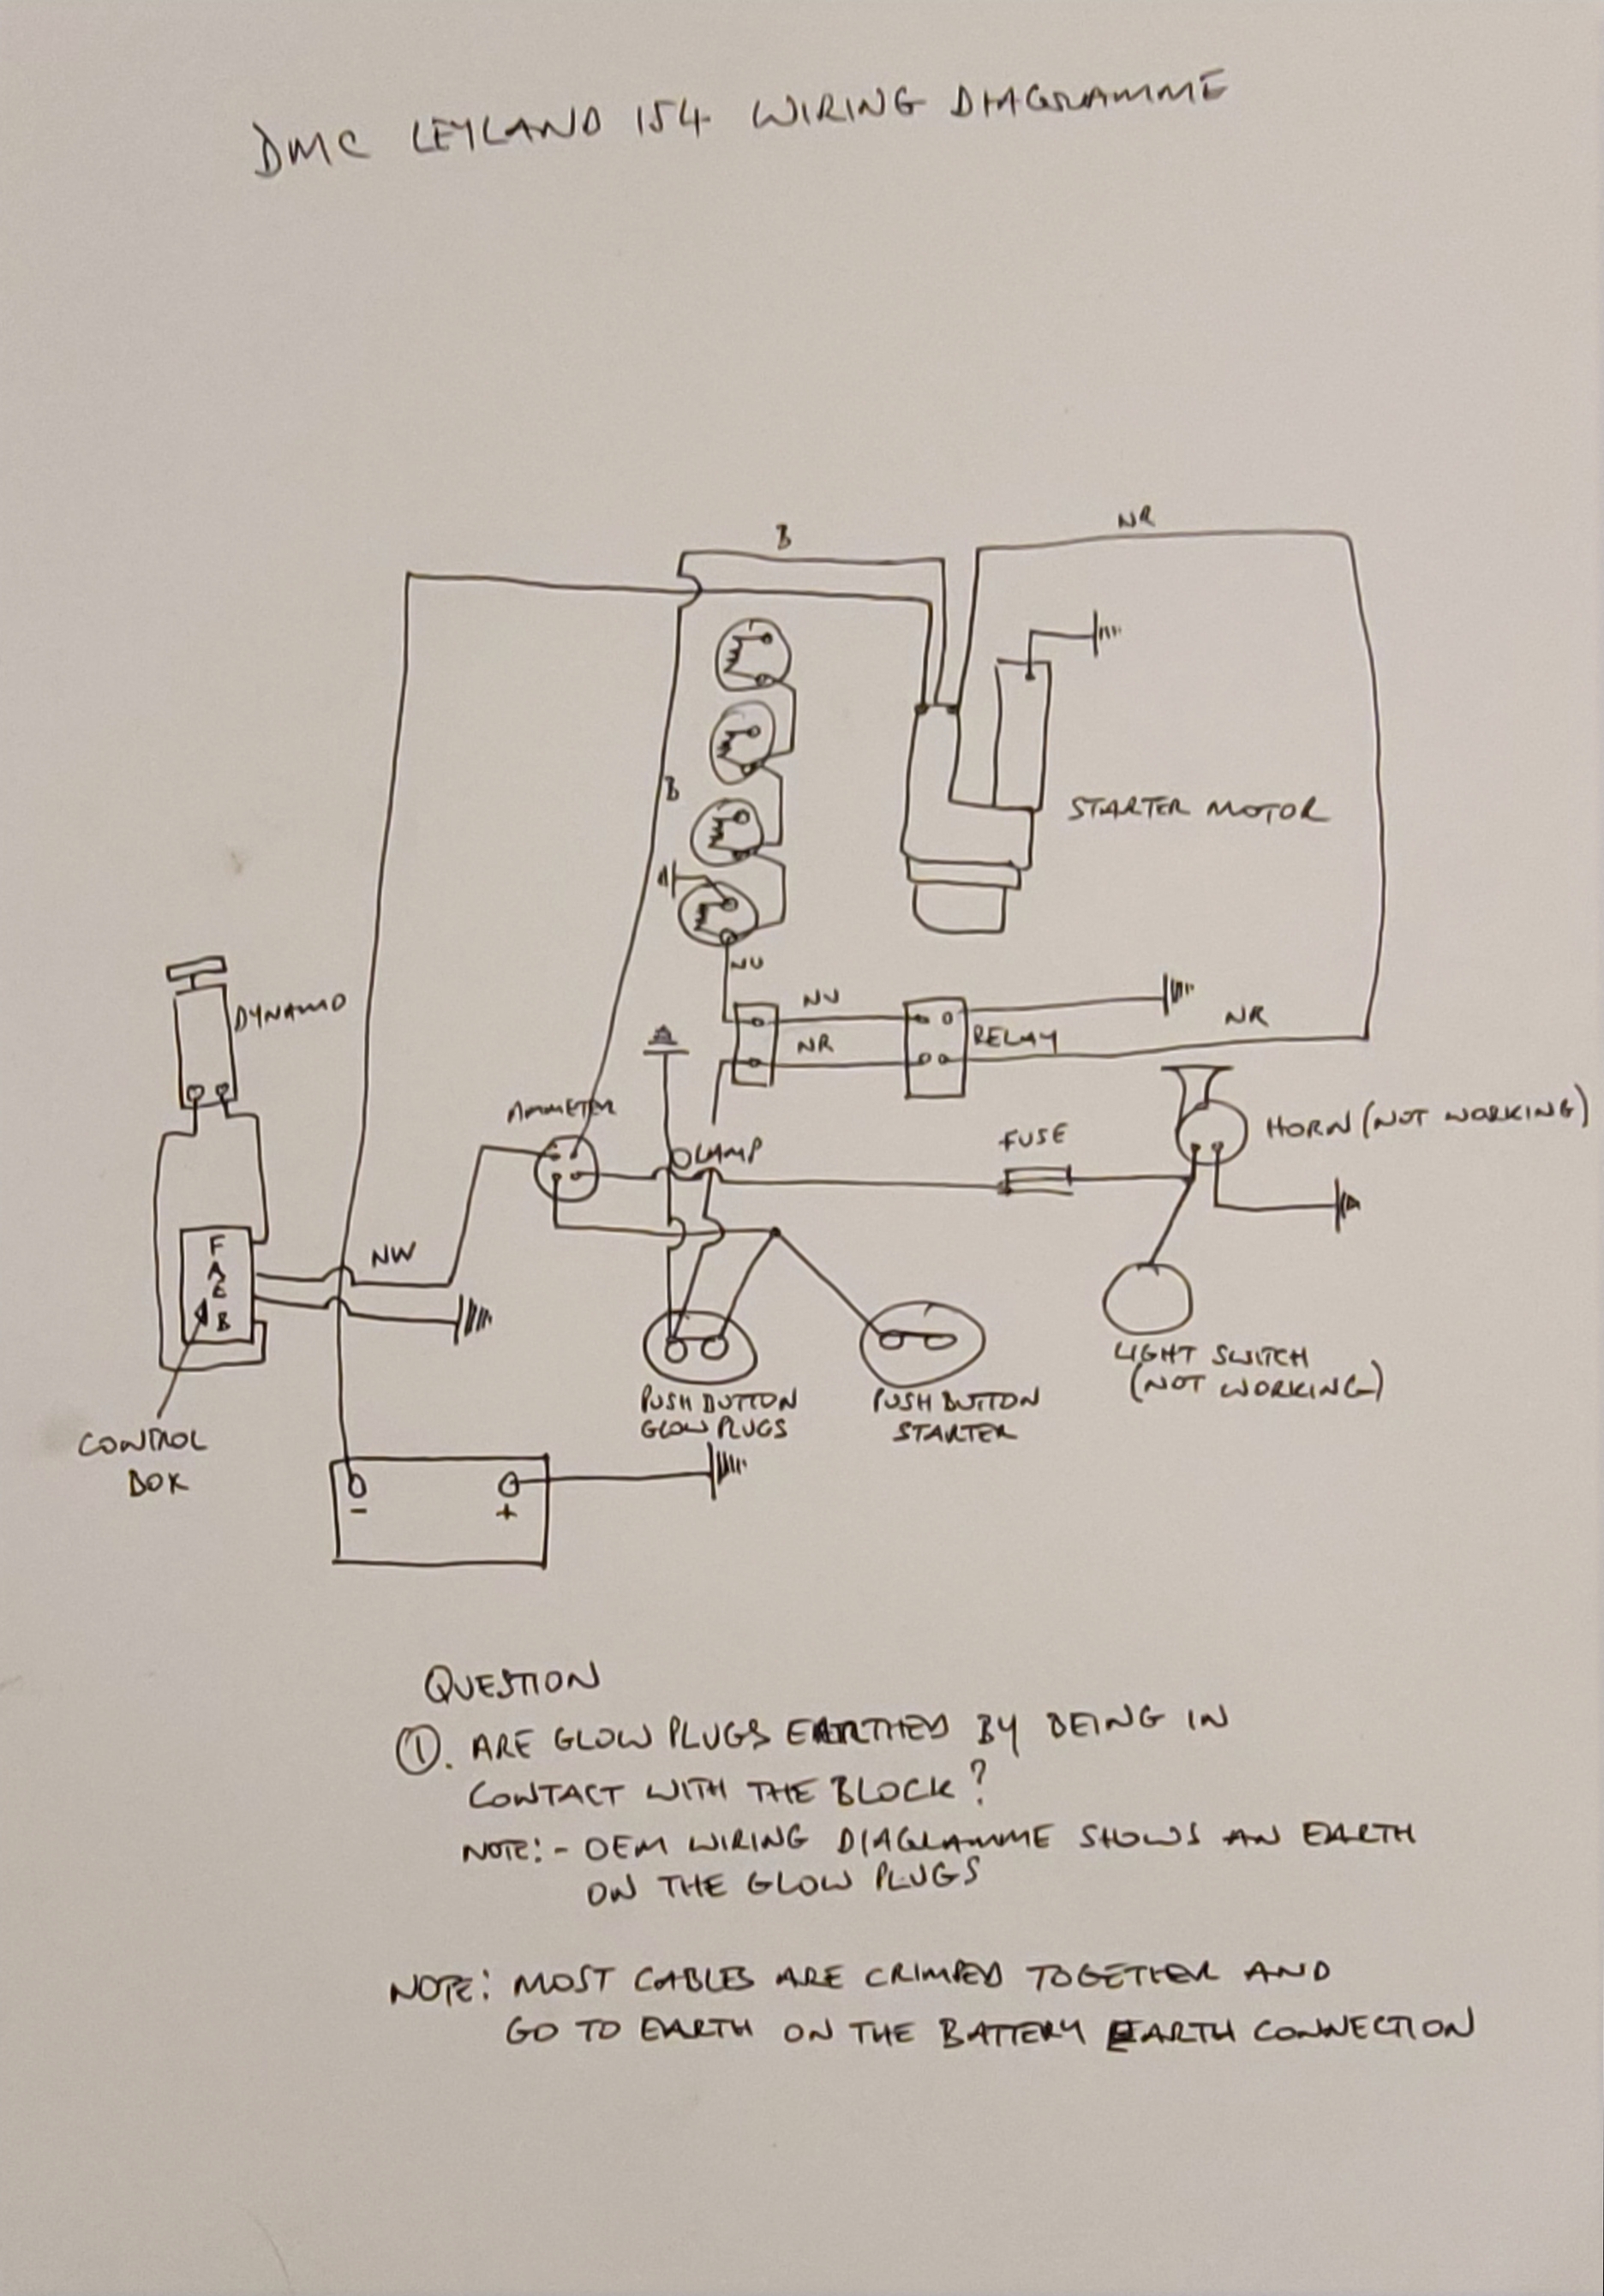 DMC LEYLAND 154 WIRING DIAGRAMME
B
NR
B
STARTER MOTOR
NU
DYNAMO
NU
NR
NR
RELAY
AMMETER
LAMP
FUSE
HORN (NOT WORKING)
F
A
E
B
NW
LIGHT SWITCH
(NOT WORKING)
PUSH BUTTON
GLOW PLUGS
PUSH BUTTON
STARTER
CONTROL
BOX
-
+
QUESTION
①. ARE GLOW PLUGS EARTHED BY BEING IN
CONTACT WITH THE BLOCK?
NOTE:- OEM WIRING DIAGRAMME SHOWS AN EARTH
ON THE GLOW PLUGS
NOTE: MOST CABLES ARE CRIMPED TOGETHER AND
GO TO EARTH ON THE BATTERY EARTH CONNECTION